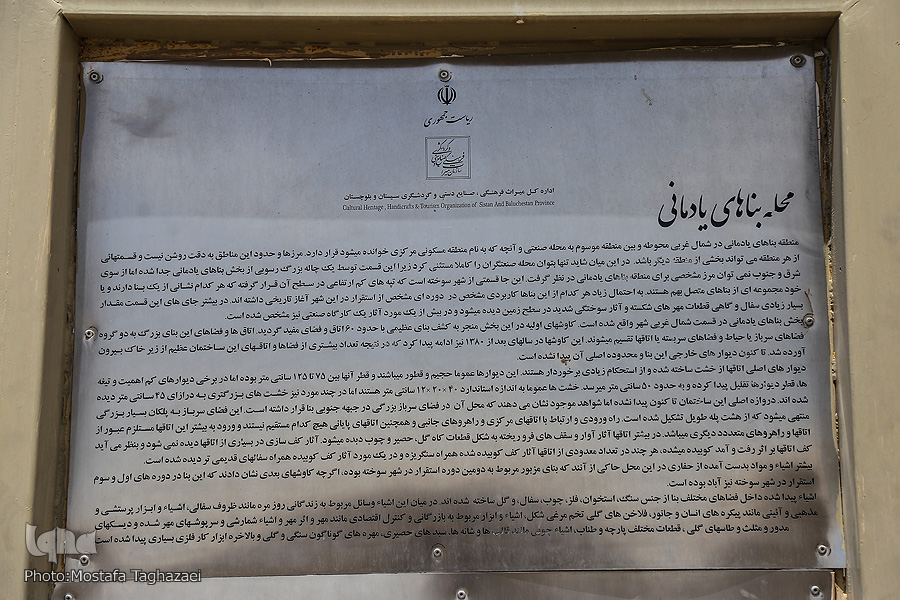 ریاست جمهوری
اداره کل میراث فرهنگی، صنایع دستی و گردشگری سیستان و بلوچستان
Cultural Heritage, Handicrafts & Tourism Organization of Sistan And Baluchestan Province
محله بناهای یادمانی
منطقه بناهای یادمانی در شمال غربی محوطه و بین منطقه موسوم به محله صنعتی و آنچه که به نام منطقه مسکونی مرکزی خوانده میشود قرار دارد. مرزها و حدود این مناطق به دقت روشن نیست و قسمتهائی
از هر منطقه می تواند بخشی از منطقه دیگر باشد. در این میان شاید تنها بتوان محله صنعتگران را کاملا مستثنی کرد زیرا این قسمت توسط یک چاله بزرگ رسوبی از بخش بناهای یادمانی جدا شده اما از سوی
شرق و جنوب نمی توان مرز مشخصی برای منطقه بناهای یادمانی در نظر گرفت. این جا قسمتی از شهر سوخته است که تپه های کم ارتفاعی در سطح آن قرار گرفته که هر کدام نشانی از یک بنا دارند و یا
خود مجموعه ای از بناهای متصل بهم هستند. به احتمال زیاد هر کدام از این بناها کاربردی مشخص در دوره ای مشخص از استقرار در این شهر آغاز تاریخی داشته اند. در بیشتر جای های این قسمت مقدار
بسیار زیادی سفال و گاهی قطعات مهر های شکسته و آثار سوختگی شدید در سطح زمین دیده میشود و در بیش از یک مورد آثار یک کارگاه صنعتی نیز مشخص شده است.
بخش بناهای یادمانی در قسمت شمال غربی شهر واقع شده است. کاوشهای اولیه در این بخش منجر به کشف بنای عظیمی با حدود ۶۰ اتاق و فضای مفید گردید. اتاق ها و فضاهای این بنای بزرگ به دو گروه
فضاهای سرباز یا حیاط و فضاهای سربسته یا اتاقها تقسیم میشوند. این کاوشها در سالهای بعد از ۱۳۸۰ نیز ادامه پیدا کرد که در نتیجه تعداد بیشتری از فضاها و اتاقهای این ساختمان عظیم از زیر خاک بیرون
آورده شد. تا کنون دیوار های خارجی این بنا و محدوده اصلی آن پیدا نشده است.
دیوار های اصلی اتاقها از خشت ساخته شده و از استحکام زیادی برخوردار هستند. این دیوارها عموما حجیم و قطور میباشند و قطر آنها بین ۷۵ تا ۱۲۵ سانتی متر بوده اما در برخی دیوارهای کم اهمیت و تیغه
ها، قطر دیوارها تقلیل پیدا کرده و به حدود ۵۰ سانتی متر میرسد خشت ها عموما به اندازه استاندارد ۴۰×۲۰×۱۲ سانتی متر هستند اما در چند مورد نیز خشت های بزرگتری به درازای ۴۵ سانتی متر دیده
شده اند. دروازه اصلی این ساختمان تا کنون پیدا نشده اما شواهد موجود نشان می دهند که محل آن در فضای سرباز بزرگی در جبهه جنوبی بنا قرار داشته است. این فضای سرباز به پلکان بسیار بزرگی
منتهی میشود که از هشت پله طویل تشکیل شده است. راه ورودی و ارتباط با اتاقهای مرکزی و راهروهای جانبی و همچنین اتاقهای پایانی هیچ کدام مستقیم نیستند و ورود به بیشتر این اتاقها مستلزم عبور از
اتاقها و راهروهای متعددد دیگری میباشد. در بیشتر اتاقها آثار آوار و سقف های فرو ریخته به شکل قطعات کاه گل، حصیر و چوب دیده میشود. آثار کف سازی در بسیاری از اتاقها دیده نمی شود و بنظر می آید
کف اتاقها بر اثر رفت و آمد کوبیده میشده، هر چند در تعداد معدودی از اتاقها آثار کف کوبیده شده همراه سنگریزه و در یک مورد آثار کف کوبیده همراه سفالهای قدیمی تر دیده شده است.
بیشتر اشیاء و مواد بدست آمده از حفاری در این محل حاکی از آنند که بنای مزبور مربوط به دومین دوره استقرار در شهر سوخته بوده، اگرچه کاوشهای بعدی نشان دادند که این بنا در دوره های اول و سوم
استقرار در شهر سوخته نیز آباد بوده است.
اشیاء پیدا شده داخل فضاهای مختلف بنا از جنس سنگ، استخوان، فلز، چوب، سفال، و گل ساخته شده اند. در میان این اشیاء وسائل مربوط به زندگانی روز مره مانند ظروف سفالی، اشیاء و ابزار پرستشی و
مذهبی و آئینی مانند پیکره های انسان و جانور، فلاخن های گلی تخم مرغی شکل، اشیاء و ابزار مربوط به بازرگانی و کنترل اقتصادی مانند مهر و اثر مهر و اشیاء شمارشی و سرپوشهای مهر شده و دیسکهای
مدور و مثلث و طاسهای گلی، قطعات مختلف پارچه و طناب، اشیاء چوبی مانند قالب ها و شانه ها، سبد های حصیری، مهره های گوناگون سنگی و گلی و بالاخره ابزار کار فلزی بسیاری پیدا شده است
iqna
Photo:Mostafa Taghazaei